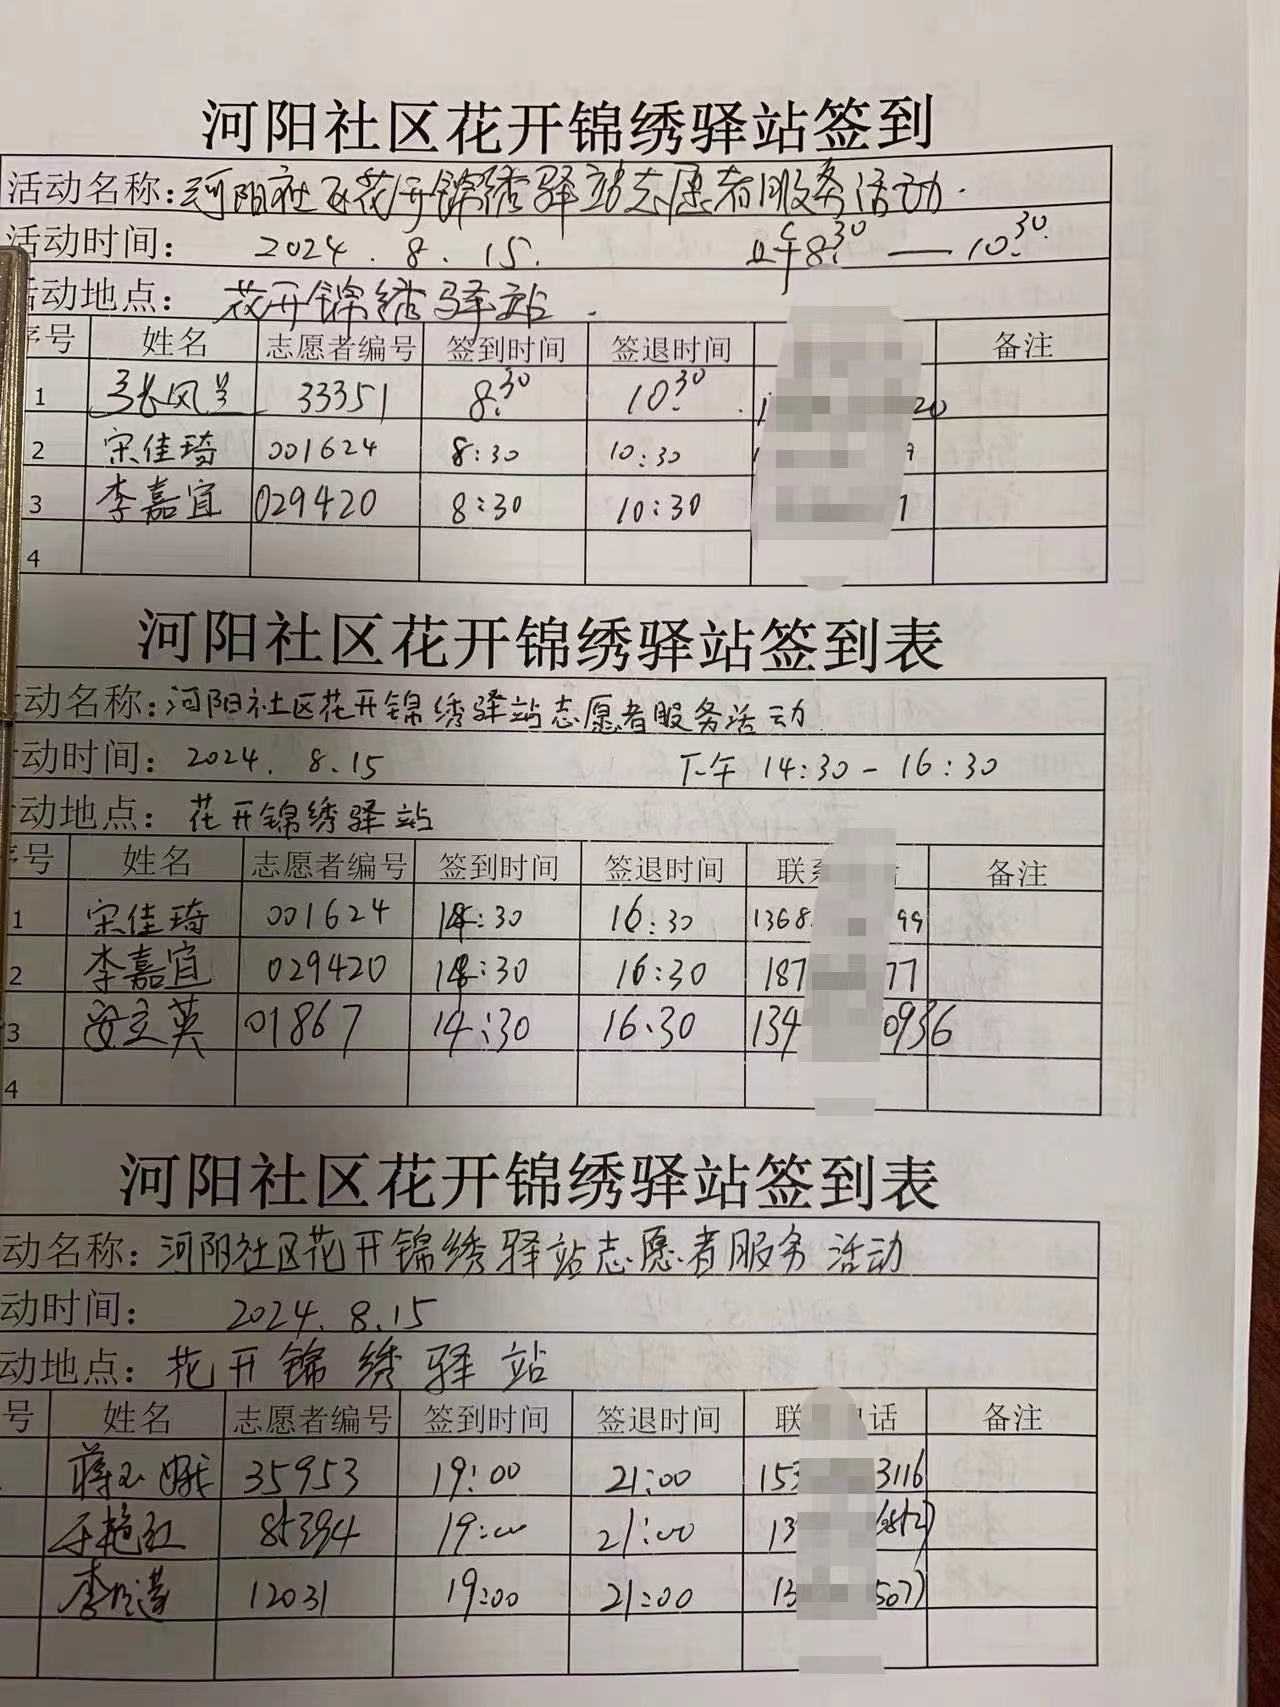 河阳社区花开锦绣驿站签到
活动名称：河阳社区花开锦绣驿站志愿者服务活动.
活动时间： 2024.8.15. 上午8:30—10:30.
活动地点： 花开锦绣驿站.
序号 姓名 志愿者编号 签到时间 签退时间 备注
1 张凤兰 33351 8:30 10:30 1 20
2 宋佳琦 001624 8:30 10:30 9
3 李嘉宜 029420 8:30 10:30
4
河阳社区花开锦绣驿站签到表
动名称：河阳社区花开锦绣驿站志愿者服务活动
动时间：2024.8.15 下午14:30-16:30
动地点：花开锦绣驿站
号 姓名 志愿者编号 签到时间 签退时间 联 备注
1 宋佳琦 001624 14:30 16:30 1368 99
2 李嘉宜 029420 14:30 16:30 187 77
3 安立英 01867 14:30 16.30 134 0936
4
河阳社区花开锦绣驿站签到表
动名称：河阳社区花开锦绣驿站志愿者服务活动
动时间： 2024.8.15
动地点：花开锦绣驿站
号 姓名 志愿者编号 签到时间 签退时间 联 话 备注
蒋玉娥 35953 19:00 21:00 153 3116
85394 19:00 21:00 13
12031 19:00 21:00 13 507